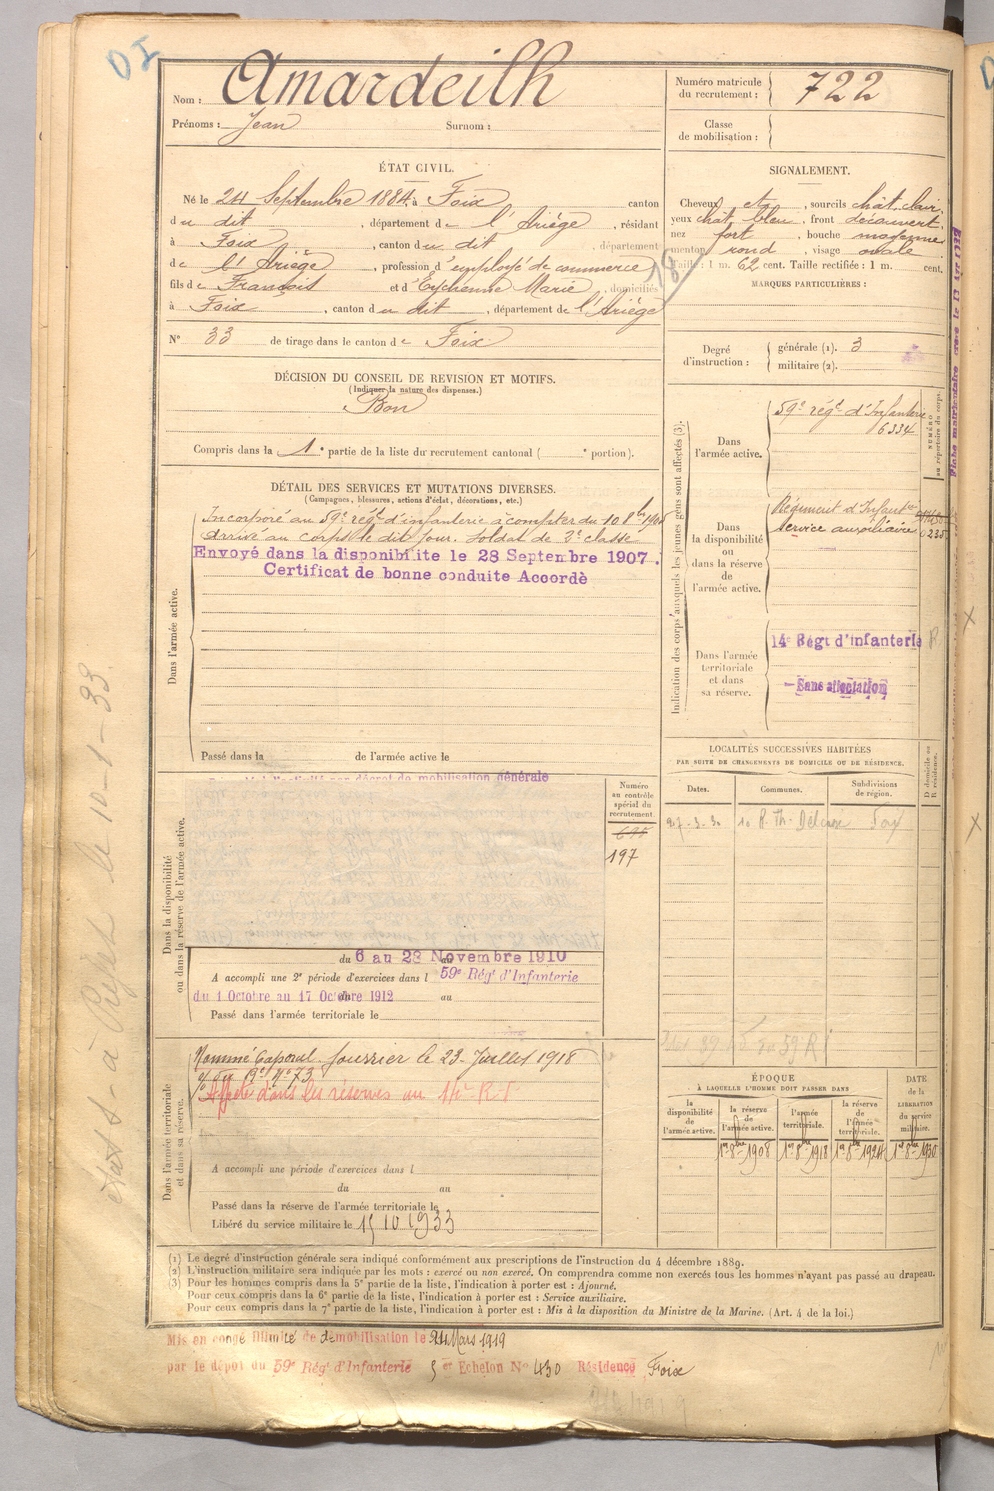 Nom : Amardeilh
Prénoms : Jean Surnom :
Numéro matricule du recrutement : 722
Classe de mobilisation :
ÉTAT CIVIL.
Né le 24 Septembre 1884, à Foix canton
du dit, département de l'Ariège, résidant
à Foix, canton du dit, département
de l'Ariège, profession d'employé de commerce
fils de François et d'Eychenne Marie, domiciliés
à Foix, canton du dit, département de l'Ariège
N° 33 de tirage dans le canton de Foix
DÉCISION DU CONSEIL DE REVISION ET MOTIFS.
(Indiquer la nature des dispenses.)
Bon
Compris dans la 1e partie de la liste du recrutement cantonal ( e portion).
SIGNALEMENT.
Cheveux et, sourcils chât. clair
yeux chât bleu, front découvert
nez fort, bouche moyenne
menton rond, visage ovale
Taille : 1 m. 62 cent. Taille rectifiée : 1 m. cent.
MARQUES PARTICULIÈRES :
Degré d'instruction : générale (1). 3
militaire (2).
DÉTAIL DES SERVICES ET MUTATIONS DIVERSES.
(Campagnes, blessures, actions d'éclat, décorations, etc.)
Dans l'armée active.
Incorporé au 59e régt d'infanterie à compter du 10 8bre 1905
Arrivé au corps le dit jour. Soldat de 2e classe
Envoyé dans la disponibilité le 28 Septembre 1907.
Certificat de bonne conduite Accordé
Passé dans la de l'armée active le
Indication des corps auxquels les jeunes gens sont affectés (3).
Dans l'armée active.
59e régt d'Infanterie
6334
NUMÉRO au répertoire du corps.
Dans la disponibilité ou dans la réserve de l'armée active.
Régiment d'Infantie
service auxiliaire
Dans l'armée territoriale et dans sa réserve.
14e Régt d'infanterie
Sans affectation
LOCALITÉS SUCCESSIVES HABITÉES
PAR SUITE DE CHANGEMENTS DE DOMICILE OU DE RÉSIDENCE.
D domicile ou R résidence.
Dates. Communes. Subdivisions de région.
27-3-30 10 R. Th. Delcasse Foix
Dans la disponibilité ou dans la réserve de l'armée active.
l'activité par décret de mobilisation générale
Numéro au contrôle spécial du recrutement.
695
197
du 6 au 28 Novembre 1910
A accompli une 2e période d'exercices dans l 59e Rég' d'Infanterie
du 1 Octobre au 17 Octobre 1912 au
Passé dans l'armée territoriale le
Dans l'armée territoriale et dans sa réserve.
Nommé Caporal fourrier le 23 Juillet 1918
Affecté dans les réserves au 14e R.I
A accompli une période d'exercices dans l
du au
Passé dans la réserve de l'armée territoriale le
Libéré du service militaire le 15 10 1933
ÉPOQUE
À LAQUELLE L'HOMME DOIT PASSER DANS
la disponibilité de l'armée active.
la réserve de l'armée active.
l'armée territoriale.
la réserve de l'armée territoriale.
DATE de la LIBÉRATION du service militaire.
1er 8bre 1908 1er 8bre 1918 1er 8bre 1924 1er 8bre 1930
(1) Le degré d'instruction générale sera indiqué conformément aux prescriptions de l'instruction du 4 décembre 1889.
(2) L'instruction militaire sera indiquée par les mots : exercé ou non exercé. On comprendra comme non exercés tous les hommes n'ayant pas passé au drapeau.
(3) Pour les hommes compris dans la 5e partie de la liste, l'indication à porter est : Ajourné.
Pour ceux compris dans la 6e partie de la liste, l'indication à porter est : Service auxiliaire.
Pour ceux compris dans la 7e partie de la liste, l'indication à porter est : Mis à la disposition du Ministre de la Marine. (Art. 4 de la loi.)
Mis en congé illimité de démobilisation le 24 Mars 1919
par le dépôt du 59e Rég' d'Infanterie Echelon N° 430 Résidence Foix